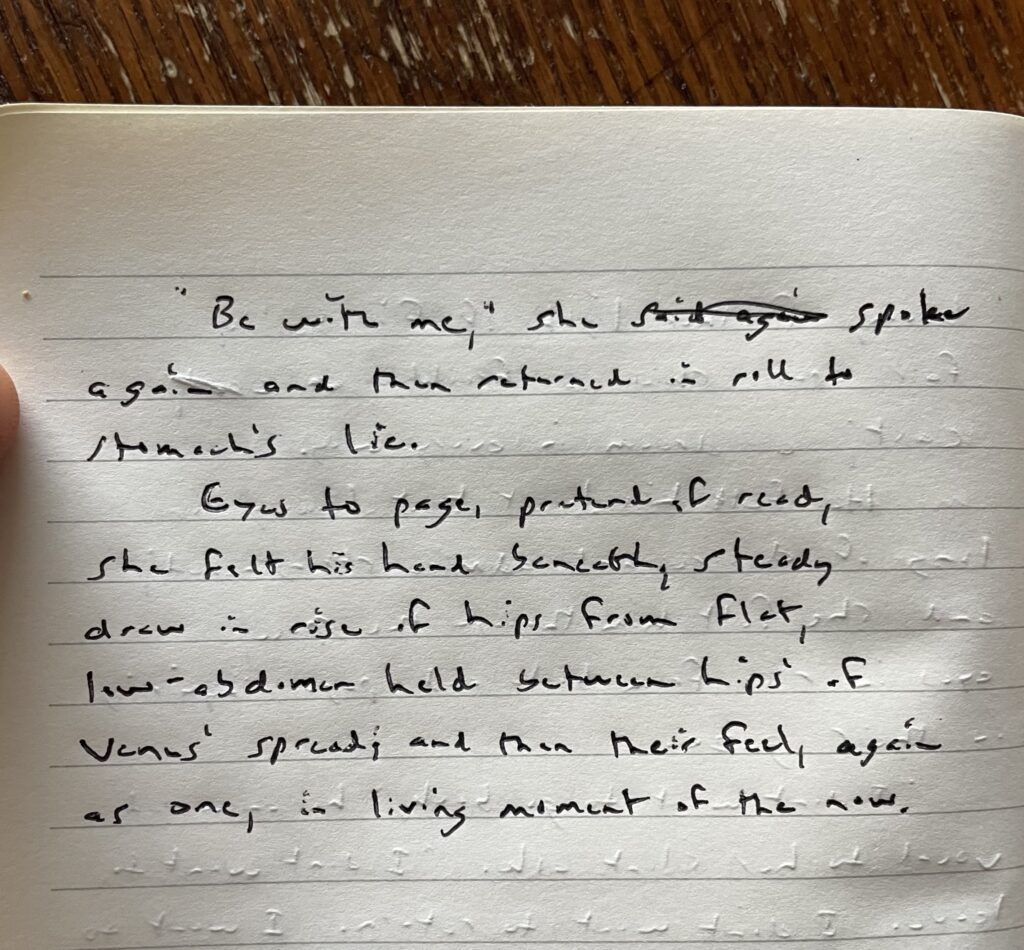 "Be with me," she said again spoke
again and then returned in roll to
stomach's lie.
Eyes to page, pretend of read,
she felt his hand beneath, steady
draw in rise of hips from flat,
low-abdomen held between hips' of
Venus' spread; and then their feel, again
as one, in living moment of the now.